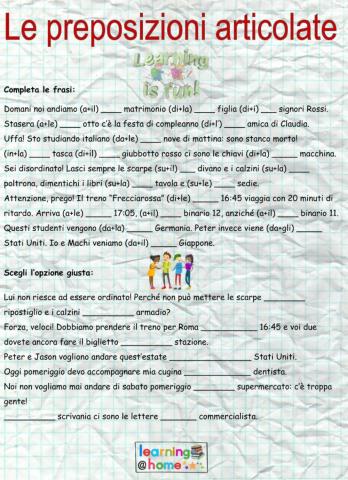 Le preposizioni articolate
Learning
is fun!
Completa le frasi:
Domani noi andiamo (a+il) ____ matrimonio (di+la) ____ figlia (di+i) ___ signori Rossi.
Stasera (a+le) ____ otto c'è la festa di compleanno (di+l') ____ amica di Claudia.
Uffa! Sto studiando italiano (da+le) ____ nove di mattina: sono stanca morta!
(in+la) ____ tasca (di+il) ____ giubbotto rosso ci sono le chiavi (di+la) ____ macchina.
Sei disordinato! Lasci sempre le scarpe (su+il) ___ divano e i calzini (su+la) ____
poltrona, dimentichi i libri (su+la) ____ tavola e (su+le) ____ sedie.
Attenzione, prego! Il treno "Frecciarossa" (di+le) ____ 16:45 viaggia con 20 minuti di
ritardo. Arriva (a+le) ____ 17:05, (a+il) ____ binario 12, anziché (a+il) ____ binario 11.
Questi studenti vengono (da+la) ____ Germania. Peter invece viene (da+gli) ____
Stati Uniti. Io e Machi veniamo (da+il) ____ Giappone.
Scegli l'opzione giusta:
Lui non riesce ad essere ordinato! Perché non può mettere le scarpe ________
ripostiglio e i calzini __________ armadio?
Forza, veloci! Dobbiamo prendere il treno per Roma __________ 16:45 e voi due
dovete ancora fare il biglietto __________ stazione.
Peter e Jason vogliono andare quest'estate _______________ Stati Uniti.
Oggi pomeriggio devo accompagnare mia cugina ____________ dentista.
Noi non vogliamo mai andare di sabato pomeriggio ________ supermercato: c'è troppa
gente!
__________ scrivania ci sono le lettere ________ commercialista.
learning
@home